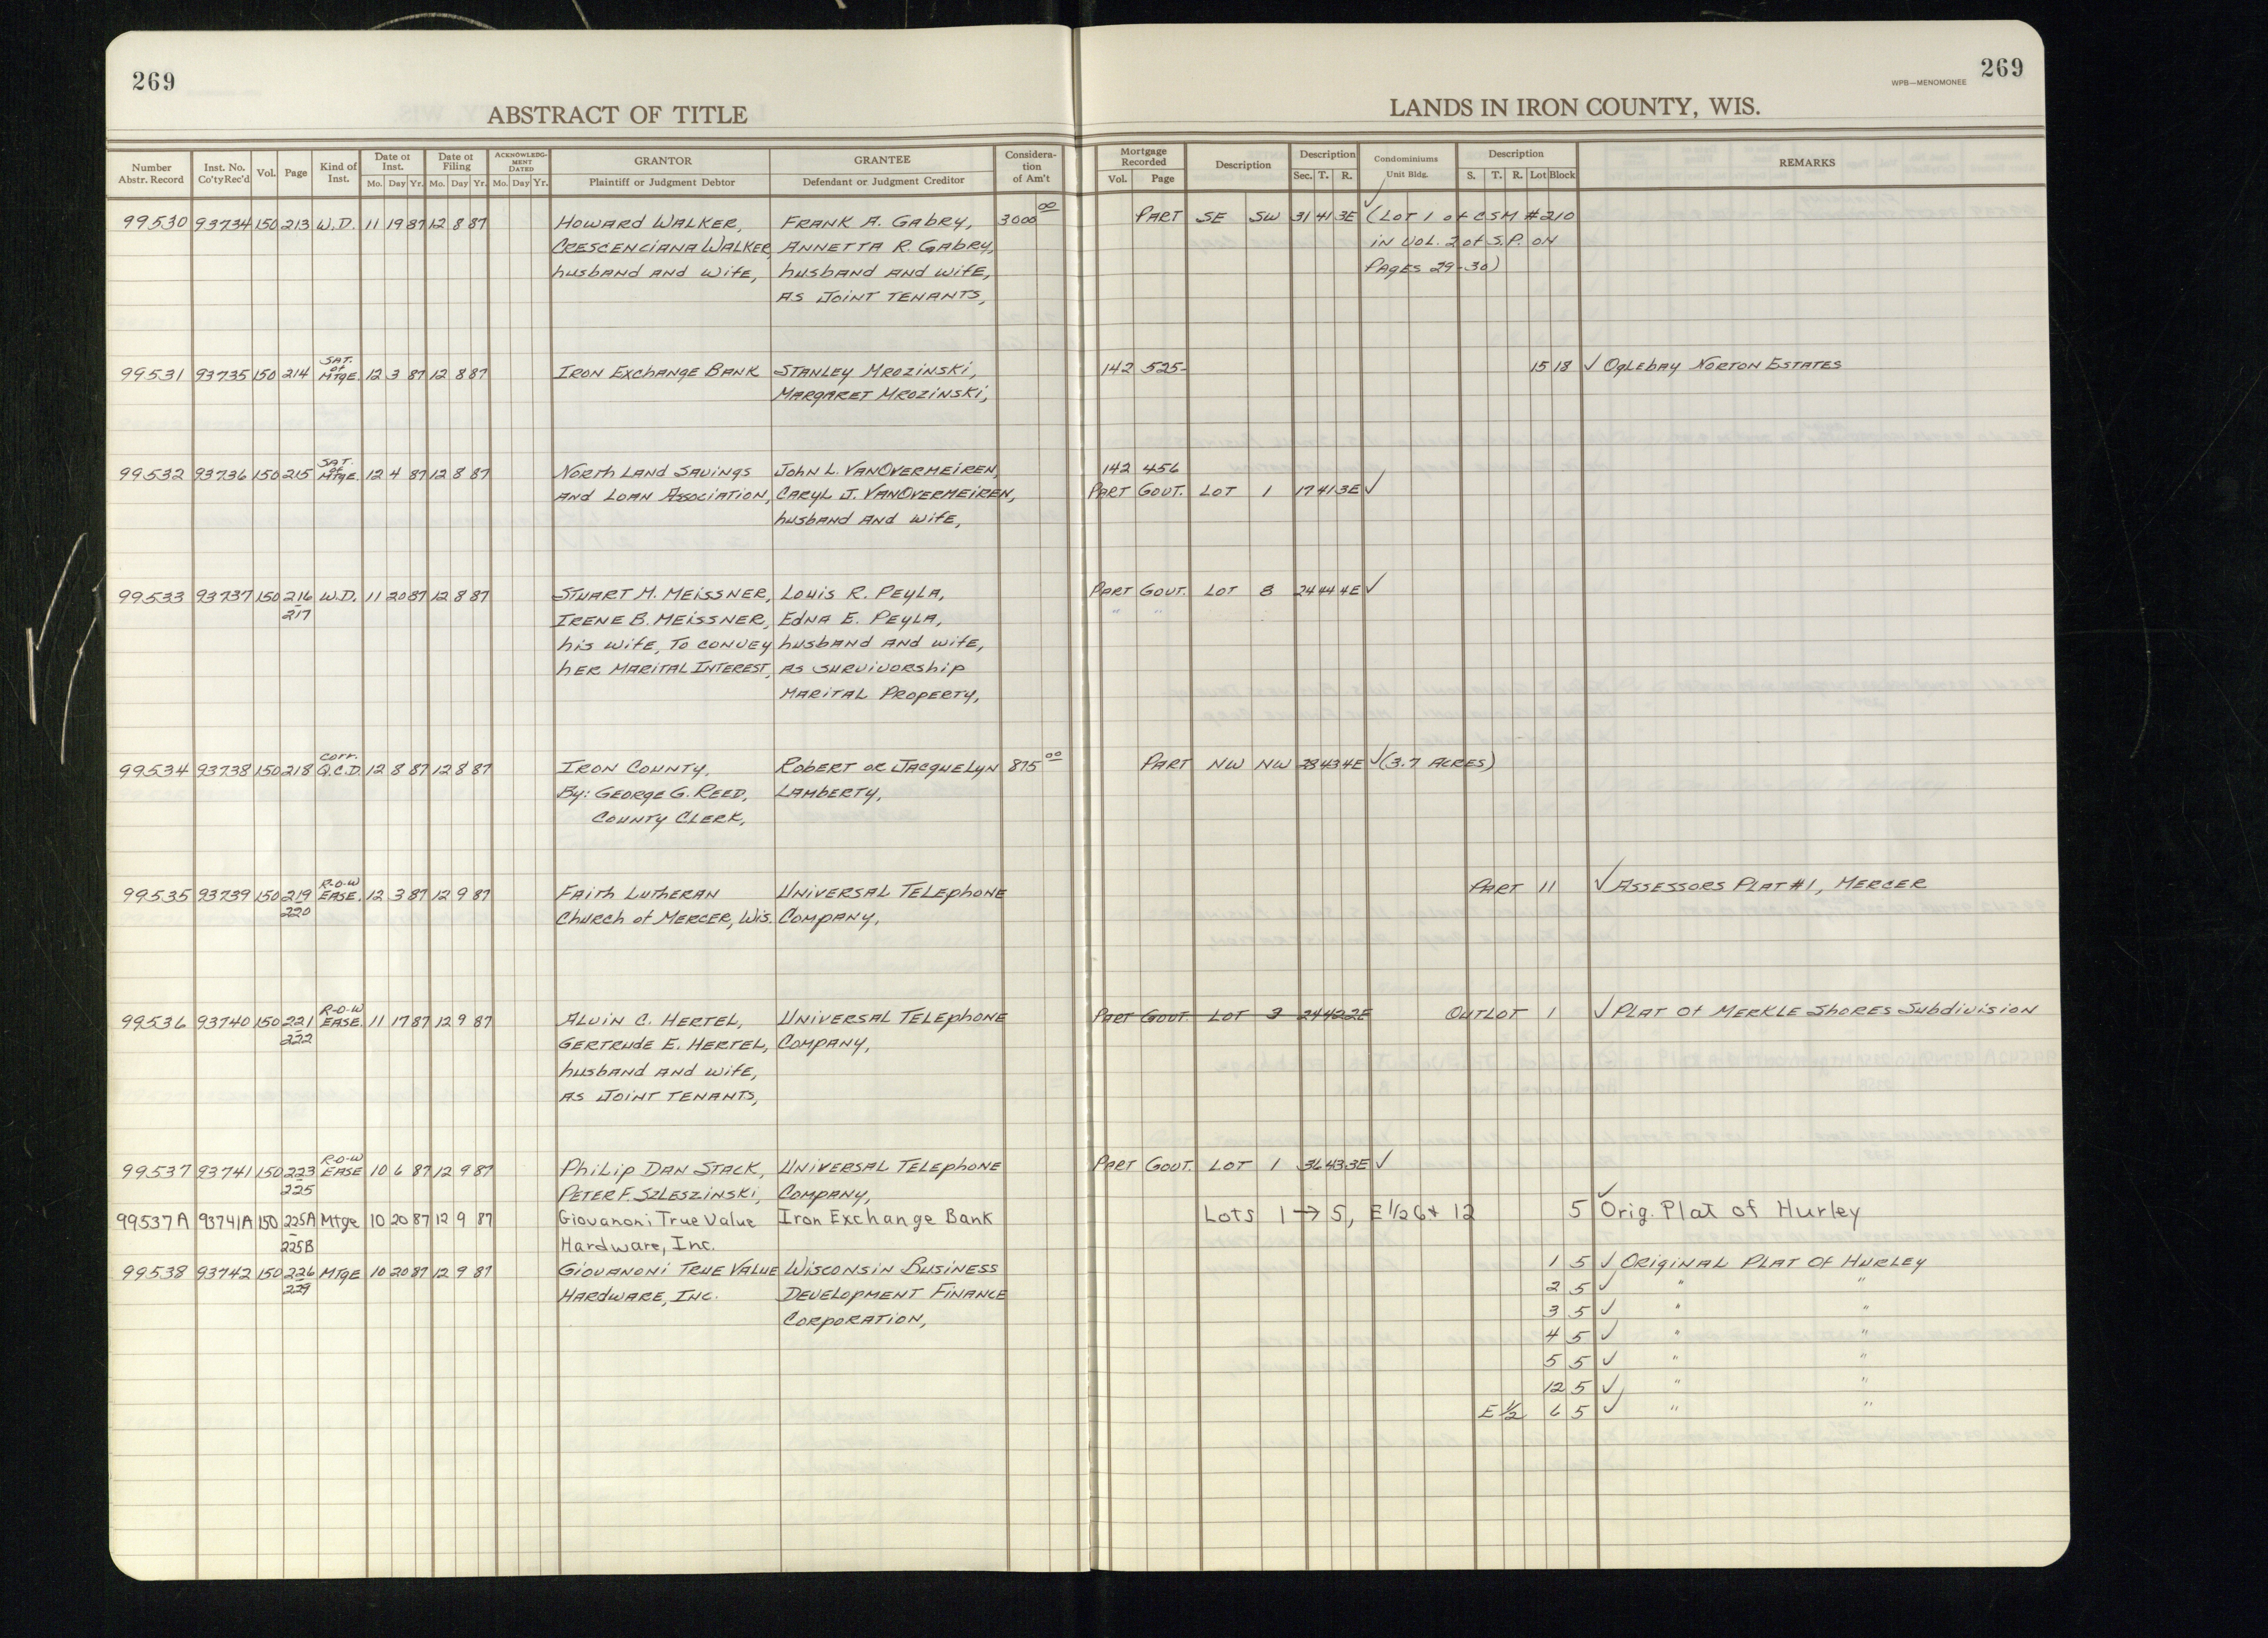 269
ABSTRACT OF TITLE
269
WPB—MENOMONEE
LANDS IN IRON COUNTY, WIS.
Number Abstr. Record | Inst. No. Co'ty Rec'd | Vol. | Page | Kind of Inst. | Date of Inst. Mo. Day Yr. | Date of Filing Mo. Day Yr. | ACKNOWLEDGMENT DATED Mo. Day Yr. | GRANTOR Plaintiff or Judgment Debtor | GRANTEE Defendant or Judgment Creditor | Consideration of Am't | Mortgage Recorded Vol. Page | Description | Description Sec. T. R. | Condominiums Unit Bldg. | Description S. T. R. Lot Block | REMARKS
99530 93734 150 213 W.D. 11 19 87 12 8 87 Howard Walker, Frank A. Gabry, 3000 00 Part SE SW 31 41 3E ✓ (Lot 1 of CSM #210
Crescenciana Walker, Annetta R. Gabry, in Vol. 2 of S.P. on
husband and wife, husband and wife, Pages 29-30)
as joint tenants,
99531 93735 150 214 Sat. of Mtge. 12 3 87 12 8 87 Iron Exchange Bank Stanley Mrozinski, 142 525 15 18 ✓ Oglebay Norton Estates
Margaret Mrozinski,
99532 93736 150 215 Sat. of Mtge. 12 4 87 12 8 87 North Land Savings John L. VanOvermeiren, 142 456
and Loan Association, Caryl J. VanOvermeiren, Part Govt. Lot 1 17 41 3E ✓
husband and wife,
99533 93737 150 216 - 217 W.D. 11 20 87 12 8 87 Stuart M. Meissner, Louis R. Peyla, Part Govt. Lot 8 24 44 4E ✓
Irene B. Meissner, Edna E. Peyla, " "
his wife, to convey husband and wife,
her marital interest, as survivorship
marital property,
99534 93738 150 218 Corr. Q.C.D. 12 8 87 12 8 87 Iron County, Robert or Jacquelyn 875 00 Part NW NW 28 43 4E ✓ (3.7 Acres)
By: George G. Reed, Lamberty,
County Clerk,
99535 93739 150 219 - 220 R-O-W Ease. 12 3 87 12 9 87 Faith Lutheran Universal Telephone Part 11 ✓ Assessors Plat #1, Mercer
Church of Mercer, Wis. Company,
99536 93740 150 221 - 222 R-O-W Ease. 11 17 87 12 9 87 Alvin C. Hertel, Universal Telephone Part Govt. Lot 3 24 42 2E Outlot 1 ✓ Plat of Merkle Shores Subdivision
Gertrude E. Hertel, Company,
husband and wife,
as joint tenants,
99537 93741 150 223 - 225 R-O-W Ease 10 6 87 12 9 87 Philip Dan Stack, Universal Telephone Part Govt. Lot 1 36 43 3E ✓
Peter F. Szleszinski, Company,
99537A 93741A 150 225A - 225B Mtge 10 20 87 12 9 87 Giovanoni True Value Iron Exchange Bank Lots 1 → 5, E 1/2 6 + 12 5 ✓ Orig. Plat of Hurley
Hardware, Inc.
99538 93742 150 226 - 229 Mtge 10 20 87 12 9 87 Giovanoni True Value Wisconsin Business 1 5 ✓ Original Plat of Hurley
Hardware, Inc. Development Finance 2 5 ✓ " "
Corporation, 3 5 ✓ " "
4 5 ✓ " "
5 5 ✓ " "
12 5 ✓ " "
E 1/2 6 5 ✓ " "